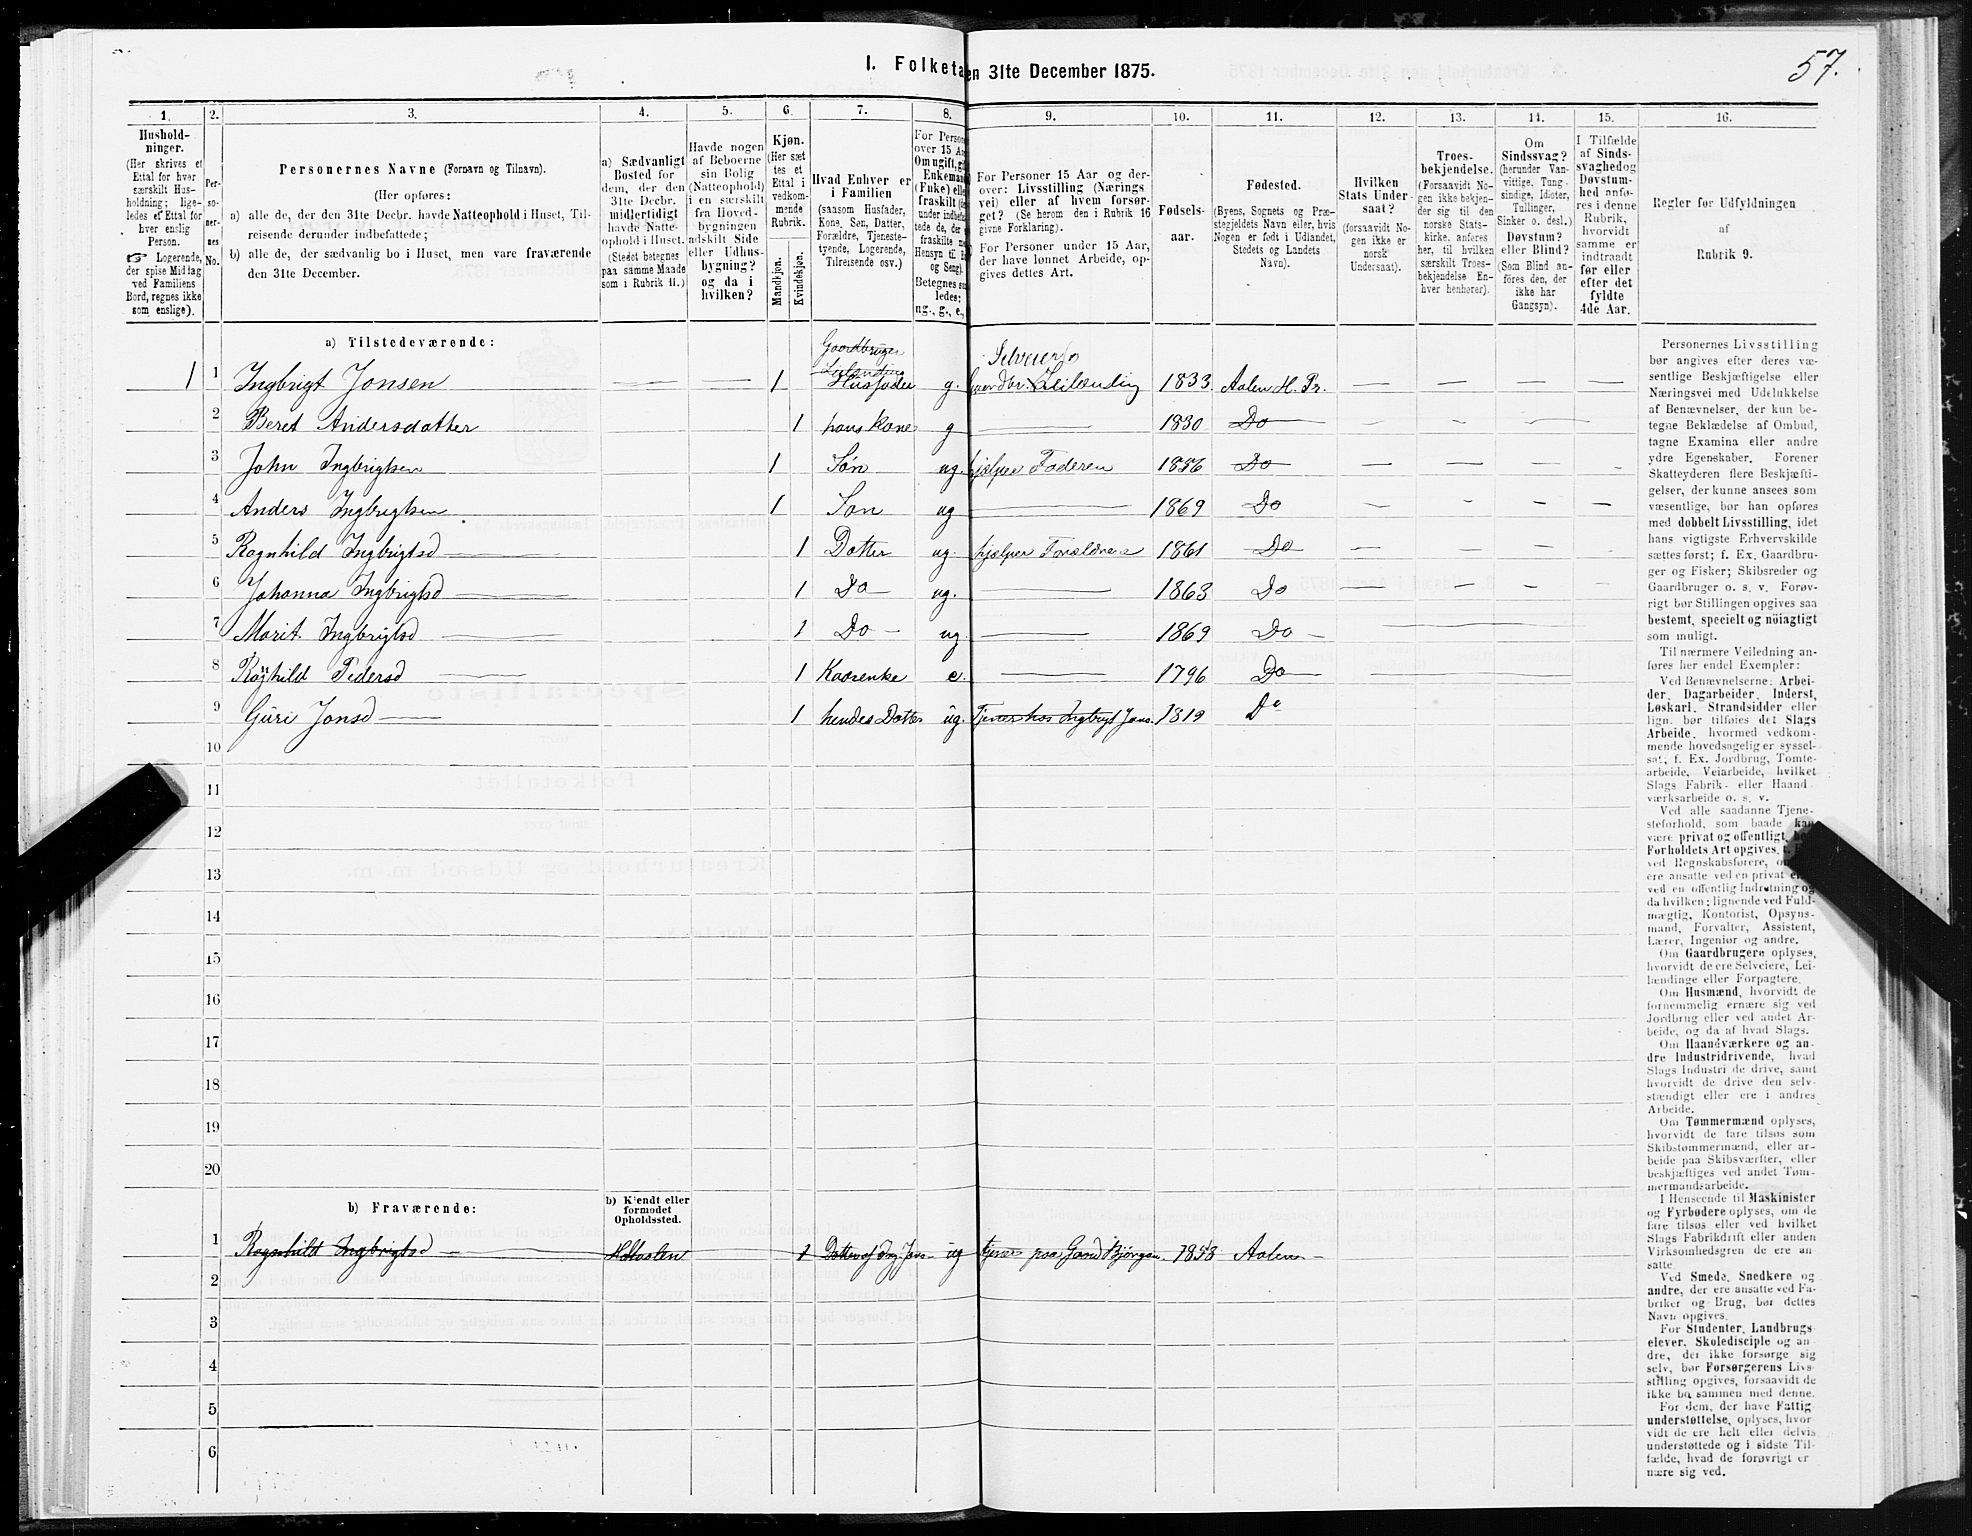 57.
I. Folketa en 31te December 1875.
1. 2. 3. 4. 5. 6. 7. 8. 9. 10. 11. 12. 13. 14. 15. 16.
Hushold-
ninger.
(Her skrives et
Ettal for hver
særskilt Hus-
holdning; lige-
ledes ef Ettal for
hver enslig
Person.
☞ Logerende,
der spise Middag
ved Familiens
Bord, regnes ikke
som enslige).
Per-
so-
ner-
nes
No.
Personernes Navne (Fornavn og Tilnavn).
(Her opføres:
a) alle de, der den 31te Decbr. havde Natteophold i Huset, Til-
reisende derunder indbefattede;
b) alle de, der sædvanlig bo i Huset, men vare fraværende
den 31te December.
a) Sædvanligt
Bosted for
dem, der den
31te Decbr.
midlertidigt
havde Natte-
ophold i Huset.
(Stedet betegnes
paa samme Maade
som i Rubrik 11.)
Havde nogen
af Beboerne
sin Bolig
(Natteophold)
i en særskilt
fra Hoved-
bygningen
adskilt Side
eller Udhus-
bygning?
og da i
hvilken?
Kjøn.
(Her sæt
tes et
Ettal i
vedkom-
mende
Rubrik.
Mandkjøn.
Kvindekjøn.
Hvad Enhver er
i Familien
(saasom Husfader,
Kone, Søn, Datter,
Forældre, Tjeneste-
tyende, Logerende,
Tilreisende osv.)
For Person
over 15 Aa
Om ugift, gi
Enkeman
(Fuke) elle
fraskilt (
under indbefa
tede de, der e
fraskilte m
Hensyn til B
og Seng).
Betegnes sa
ledes:
ug., g., e.,
For Personer 15 Aar og der-
over: Livsstilling (Nærings
vei) eller af hvem forsør-
get? (Se herom den i Rubrik 16
givne Forklaring).
For Personer under 15 Aar,
der have lønnet Arbeide, op-
gives dettes Art.
Fødsels-
aar.
Fødested.
(Byens, Sognets og Præ-
stegjeldets Navn eller, hvis
Nogen er født i Udlandet,
Stedets og Landets
Navn).
Hvilken
Stats Under-
saat?
(forsaavidt No-
gen ikke er
norsk
Undersaat).
Troes-
bekjendelse.
(Forsaavidt No-
gen ikke bekjen-
der sig til den
norske Stats-
kirke, anføres
her, til hvilken
særskilt Troes-
bekjendelse En-
hver henhører).
Om
Sindssvag?
(herunder Van-
vittige, Tung-
sindige, Idioter,
Tullinger,
Sinker o. desl.)
Døvstum?
eller Blind?
(Som Blind an-
føres den, der
ikke har
Gangsyn).
I Tilfælde
af Sinds-
svaghed og
Døvstum-
hed anfø-
res i denne
Rubrik,
hvorvidt
samme er
indtraadt
før eller
efter det
fyldte
4de Aar.
Regler for Udfyldningen
af
Rubrik 9.
a) Tilstedeværende:
Gaardbruger
Leilending
Selveier
1 1 Ingbrigt Jonsen 1 Husfader g. Gaardbr. Leilending 1833. Aalen H. Pr. — — — —
2 Beret Andersdatter 1 hans Kone g — 1830 Do — — — —
3 John Ingbrigtsen 1 Søn ug. hjælper Faderen 1856 Do — — — —
4 Anders Ingbrigtsen 1 Søn ug — 1869 Do — — — —
5 Ragnhild Ingbrigtsd — 1 Datter ug. hjælper Forældrene 1861 Do — — — —
6 Johanna Ingbrigtsd — 1 Do — ug. — 1863 Do — — — —
7 Marit Ingbrigtsd — 1 Do — ug. — 1869 Do —
8 Ragnhild Pedersd — 1 Kaarenke e. — 1796 Do —
9 Guri Jonsd — 1 hendes Datter ug. Tjener hos Ingbrigt Jons. 1819 Do
10
11
12
13
14
15
16
17
18
19
20
b) Fraværende:
b) Kjendt eller
formodet
Opholdssted.
1 Ragnhild Ingbrigtsd — Holtaalen 1 Datter af Ing. Jons — ug tjener paa Gaard Bjørgan. 1858 Aalen —
2
3
4
5
6
Personernes Livsstilling
bør angives efter deres væ-
sentlige Beskjæftigelse eller
Næringsvei med Udelukkelse
af Benævnelser, der kun be-
tegne Beklædelse af Ombud,
tagne Examina eller andre
ydre Egenskaber. Forener
Skatteyderen flere Beskjæfti-
gelser, der kunne ansees som
væsentlige, bør han opføres
med dobbelt Livsstilling, idet
hans vigtigste Erhvervskilde
sættes først; f. Ex. Gaardbru-
ger og Fisker; Skibsreder og
Gaardbruger o. s. v. Forøv-
rigt bør Stillingen opgives saa
bestemt, specielt og nöiagtigt
som muligt.
Til nærmere Veiledning an-
føres her endel Exempler:
Ved Benævnelserne: Arbei-
der, Dagarbeider, Inderst,
Løskarl, Strandsidder eller
lign. bør tilføies det Slags
Arbeide, hvormed vedkom-
mende hovedsagelig er syssel-
sat; f. Ex. Jordbrug, Tomte-
arbeide, Veiarbeide, hvilket
Slags Fabrik- eller Haand-
værksarbeide o. s. v.
Ved alle saadanne Tjene-
steforhold, som baade kan
være privat og offentligt, bør
Forholdets Art opgives,
ved Regnskabsførere, om
ere ansatte ved en privat el
ved en offentlig Indretning og
da hvilken; lignende ved Fuld-
mægtig, Kontorist, Opsyns-
mand, Forvalter, Assistent,
Lærer, Ingeniør og andre.
Om Gaardbrugere oplyses,
hvorvidt de ere Selveiere, Lei-
lændinge eller Forpagtere.
Om Husmænd, hvorvidt de
fornemmelig ernære sig ved
Jordbrug eller ved andet Ar-
beide, og da af hvad Slags.
Om Haandværkere og an-
dre Industridrivende, hvad
Slags Industri de drive, samt
hvorvidt de drive den selv-
stændigt eller ere i andres
Arbeide.
Om Tømmermænd oplyses,
hvorvidt de fare tilsøs som
Skibstømmermænd, eller ar-
beide paa Skibsværfter, eller
beskjæftiges ved andet Tøm-
mermandsarbeide.
I Henseende til Maskinister
og Fyrbødere oplyses, om de
fare tilsøs eller ved hvilket
Slags Fabrikdrift eller anden
Virksomhedsgren de ere an-
satte
Ved Smede, Snedkere og
andre, der ere ansatte ved Fa-
briker og Brug, bør dettes
Navn opgives.
For Studenter, Landbrugs-
elever, Skoledisciple og an-
dre, der ikke forsørge sig
selv, bør Forsørgerens Livs-
stilling opgives, forsaavidt de
ikke bo sammen med denne.
For dem, der have Fattig-
understøttelse, oplyses, hvor-
vidt de ere helt eller delvis
understøttede og i sidste Til-
fælde, hvad de forøvrigt er-
nære sig ved.